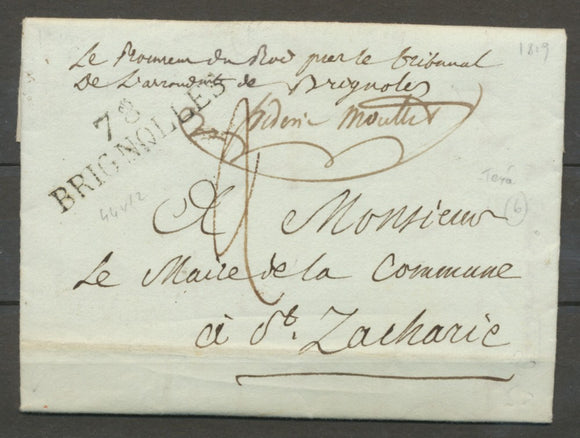 Le Procureur du Roi près le tribunal
De L'arrondt de Brignoles
1819
78
BRIGNOLLES
taxé
(6)
A Monsieur
Le Maire de la Commune
à St. Zacharie